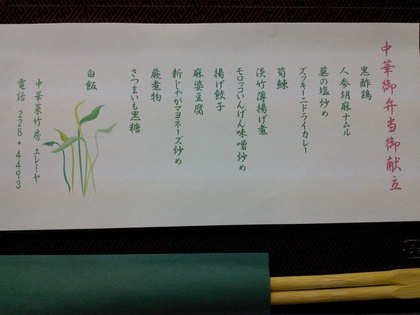 中華御弁当御献立
黒酢鶏
人参胡麻ナムル
蕗の塩炒め
ズッキーニドライカレー
筍鰊
淡竹薄揚げ煮
モロッコいんげん味噌炒め
揚げ餃子
麻婆豆腐
新じゃがマヨネーズ炒め
蕨煮物
さつまいも黒糖
白飯
中華菜竹房 エレミヤ
電話 228・4493